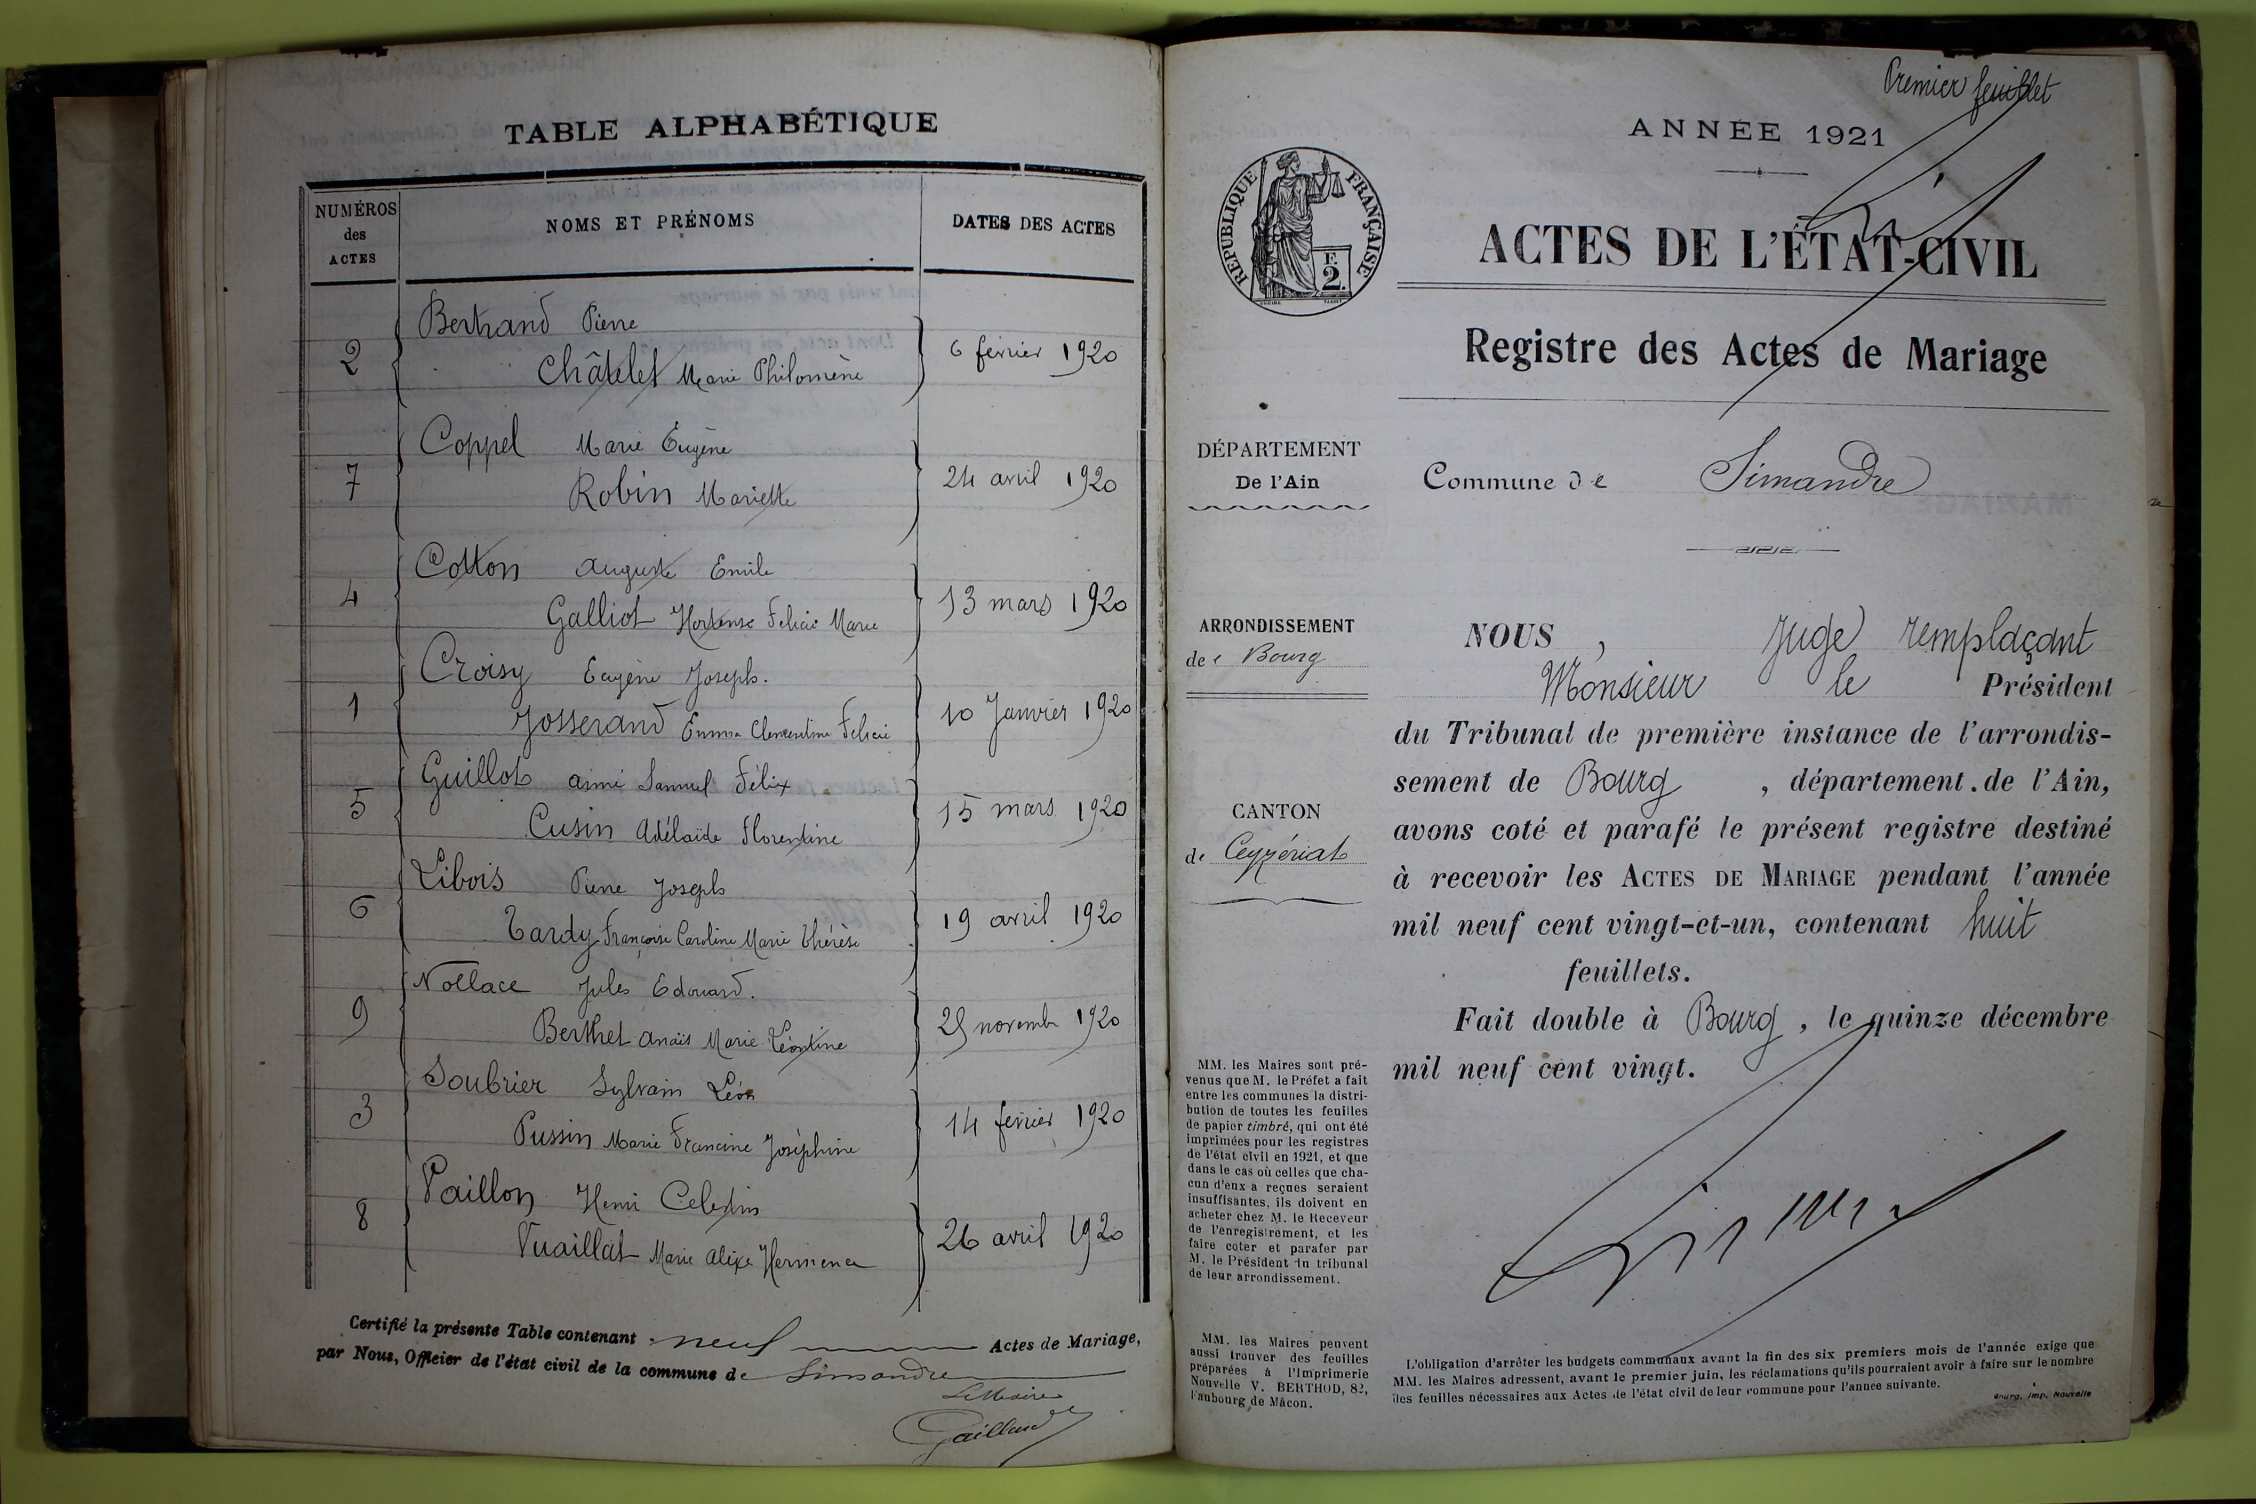 TABLE ALPHABÉTIQUE
NUMÉROS des ACTES
NOMS ET PRÉNOMS
DATES DES ACTES
Bertrand Pierre
2
Châtelet Marie Philomène
6 février 1920
Coppel Marie Eugène
7
Robin Mariette
24 avril 1920
Cotton Auguste Emile
4
Galliot Hortense Felicie Marie
13 mars 1920
Croisy Eugène Joseph.
1
Josserand Emma Clementine Felicie
10 Janvier 1920
Guillot aimé Samuel Félix
5
Cusin Adélaïde Florentine
15 mars 1920
Libois Pierre Joseph
6
Tardy Françoise Caroline Marie Thérèse
19 avril 1920
Nollace Jules Edouard.
9
Berthet Anaïs Marie Léontine
novembre 1920
Soubrier Sylvain Léon
3
Pussin Marie Francine Joséphine
14 février 1920
Vaillon Henri Celestin
8
Vuaillat Marie Alix Hermence
26 avril 1920
Certifié la présente Table contenant neuf Actes de Mariage,
par Nous, Officier de l'état civil de la commune de Simandre
Le Maire
Gaillard
Premier feuillet
ANNÉE 1921
RÉPUBLIQUE FRANÇAISE
F.
2.
ACTES DE L'ÉTAT-CIVIL
Registre des Actes de Mariage
DÉPARTEMENT
De l'Ain
Commune de Simandre
ARRONDISSEMENT
de Bourg
CANTON
de Ceyzériat
NOUS, Juge remplaçant
Monsieur le Président
du Tribunal de première instance de l'arrondis-
sement de Bourg, département de l'Ain,
avons coté et parafé le présent registre destiné
à recevoir les ACTES DE MARIAGE pendant l'année
mil neuf cent vingt-et-un, contenant huit
feuillets.
Fait double à Bourg, le quinze décembre
mil neuf cent vingt.
MM. les Maires sont pré-
venus que M. le Préfet a fait
entre les communes la distri-
bution de toutes les feuilles
de papier timbré, qui ont été
imprimées pour les registres
de l'état civil en 1921, et que
dans le cas où celles que cha-
cun d'eux a reçues seraient
insuffisantes, ils doivent en
acheter chez M. le Receveur
de l'enregistrement, et les
faire coter et parafer par
M. le Président du tribunal
de leur arrondissement.
MM. les Maires peuvent
aussi trouver des feuilles
préparées à l'Imprimerie
Nouvelle V. BERTHOD, 82,
faubourg de Mâcon.
L'obligation d'arrêter les budgets communaux avant la fin des six premiers mois de l'année exige que
MM. les Maires adressent, avant le premier juin, les réclamations qu'ils pourraient avoir à faire sur le nombre
des feuilles nécessaires aux Actes de l'état civil de leur commune pour l'année suivante.
Bourg, Imp. Nouvelle